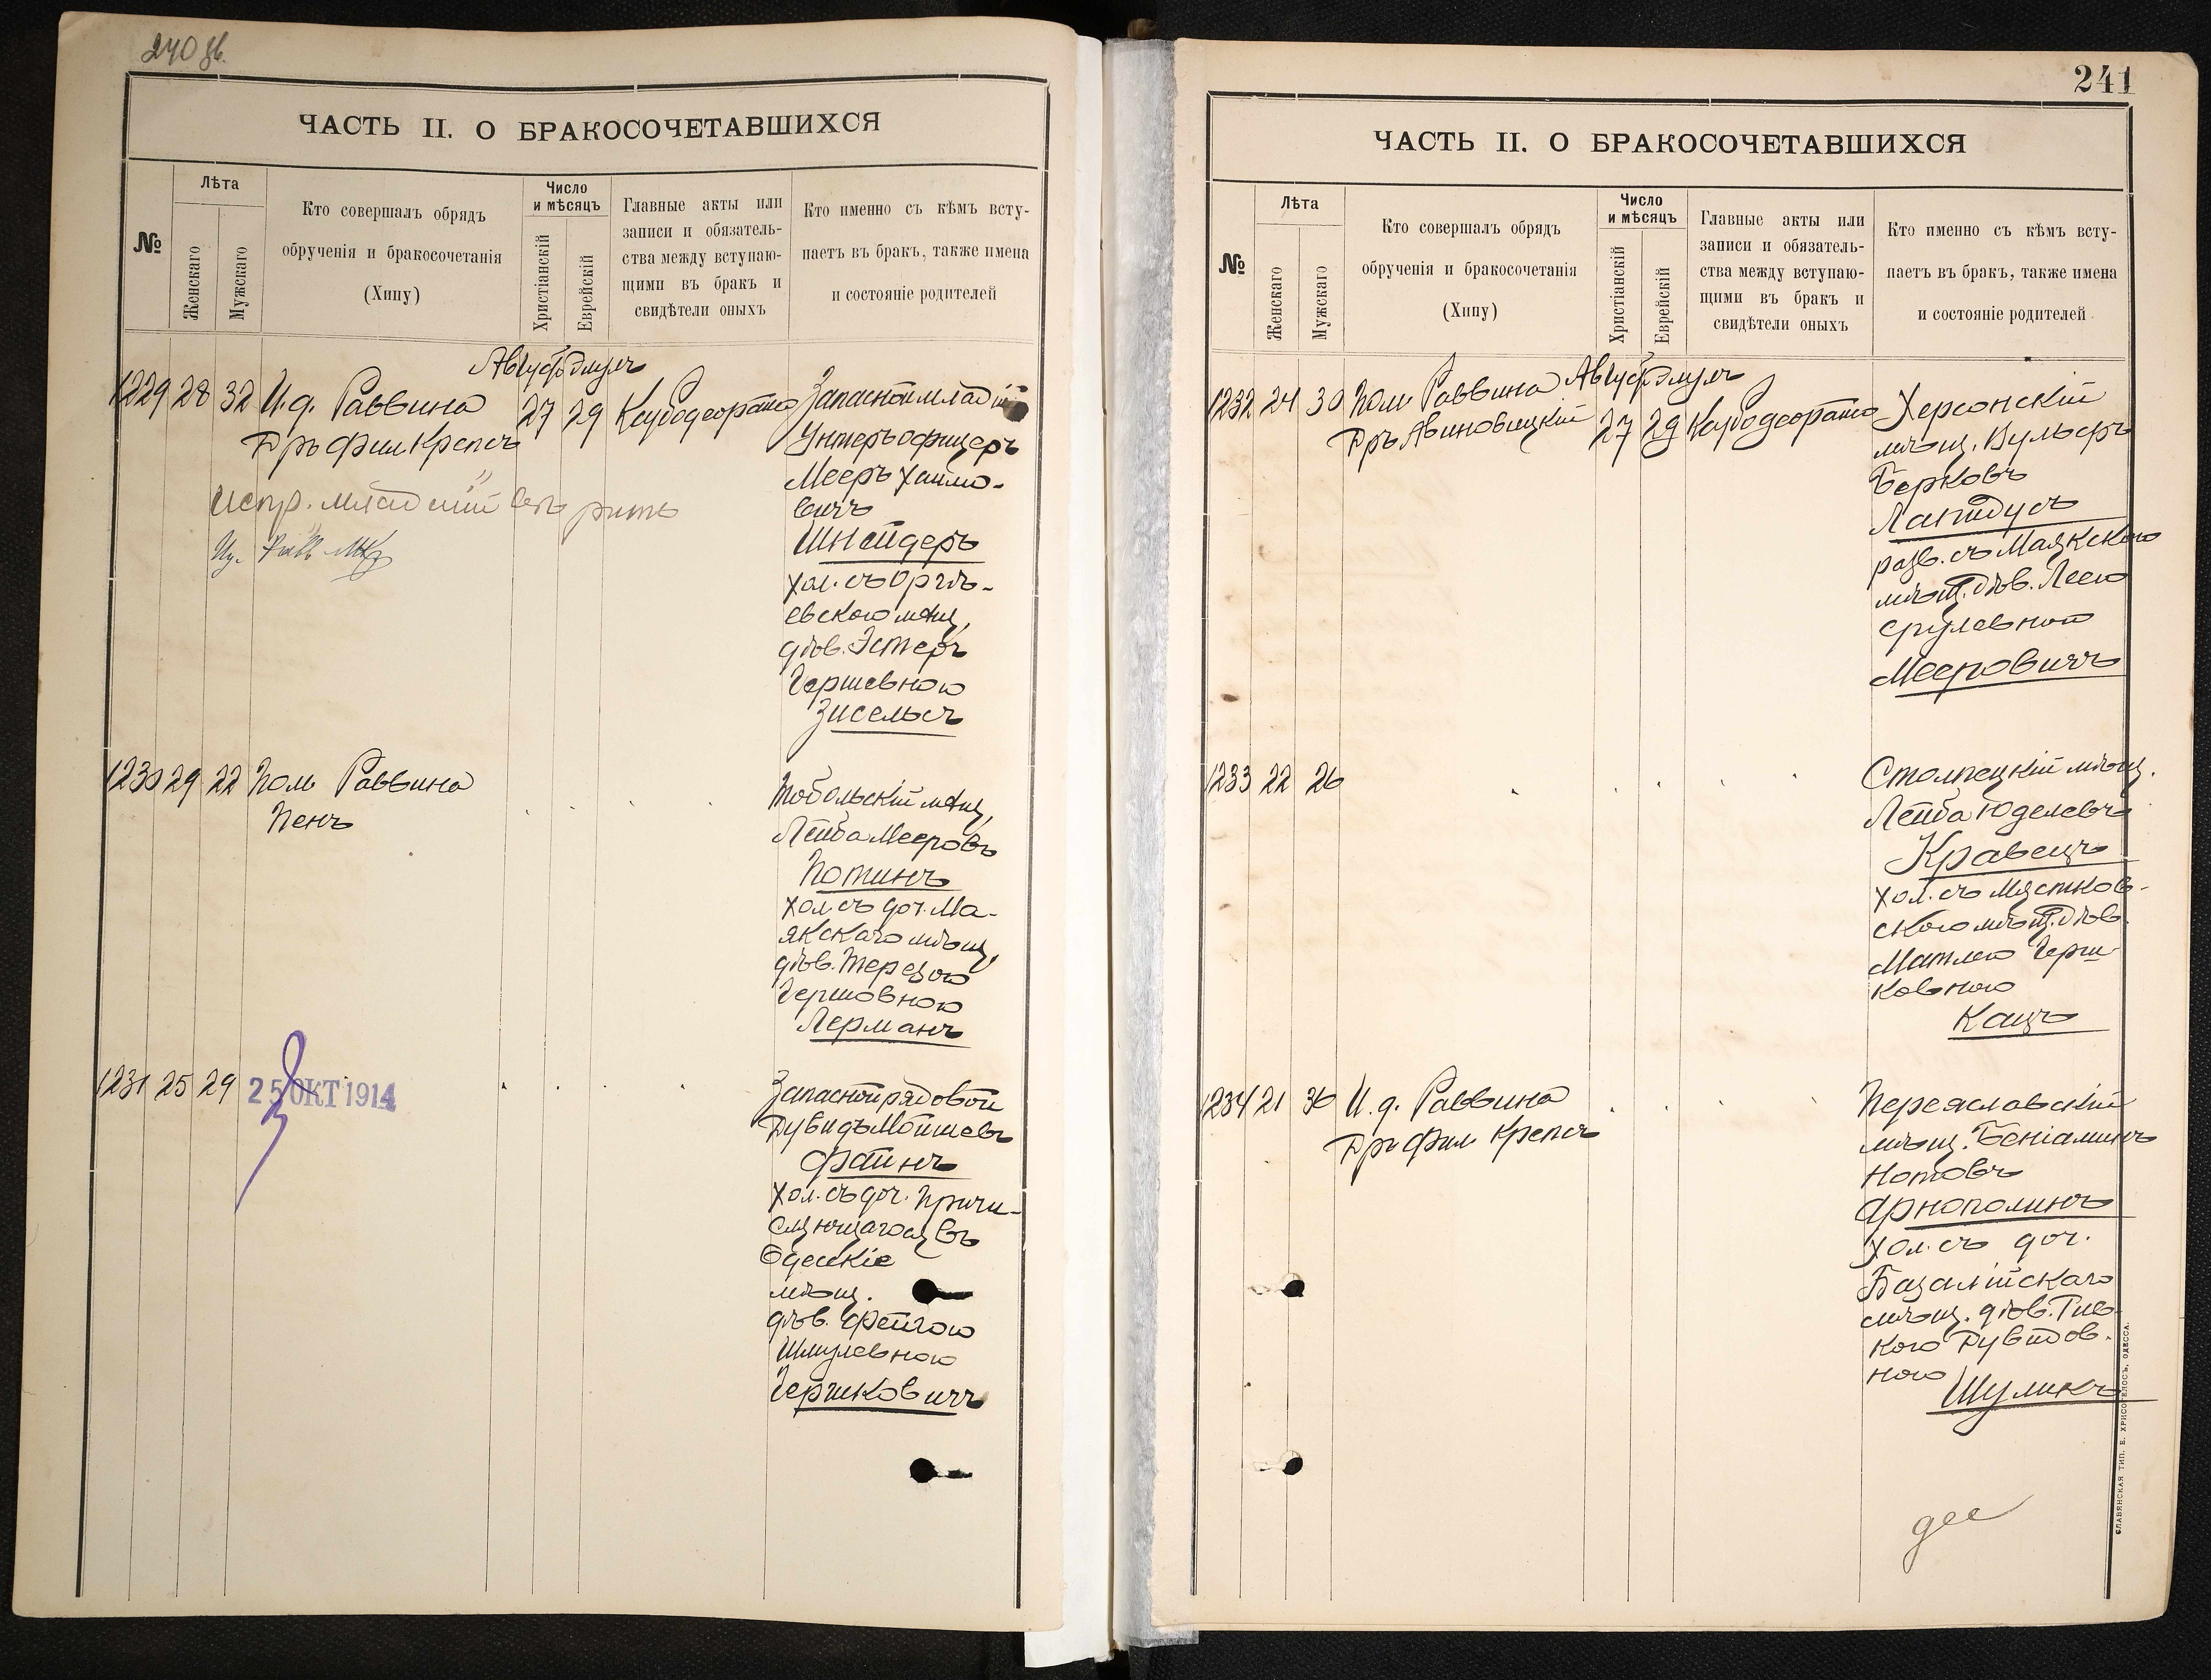 240 об.
ЧАСТЬ II. О БРАКОСОЧЕТАВШИХСЯ
№
Лѣта
Женскаго
Мужскаго
Кто совершалъ обрядъ
обрученія и бракосочетанія
(Хипу)
Число
и мѣсяцъ
Христіанскій
Еврейскій
Главные акты или
записи и обязатель-
ства между вступаю-
щими въ бракъ и
свидѣтели оныхъ
Кто именно съ кѣмъ всту-
паетъ въ бракъ, также имена
и состояніе родителей
Август Элулъ
1229 28 32 И.д. Раввина 27 29
Дръ фил Крепсъ
Запасной младшій
Унтеръ офицеръ
Мееръ Хаимо-
вичъ
Шнейдеръ
хол. съ Оргѣ-
евскою мѣщ,
дѣв. Эстеръ
Гершевною
Зисельсъ
испр. младшій вѣрить
1230 29 22 Пом Раввина
Пенъ
Тобольскій мѣщ,
Лейба Мееровъ
Потинъ
хол съ доч. Ма-
якскаго мѣщ,
дѣв. Терезою
Гершовною
Лерманъ
1231 25 29
25 ОКТ 1914
Запасной рядовой
Дувидъ Мойшевъ
Файнъ
хол. съ доч. Причи-
сляющагося въ
Одесскіе
мѣщ.
дѣв. Фейгою
Шмулевною
Гершковичъ
241
ЧАСТЬ II. О БРАКОСОЧЕТАВШИХСЯ
№
Лѣта
Женскаго
Мужскаго
Кто совершалъ обрядъ
обрученія и бракосочетанія
(Хипу)
Число
и мѣсяцъ
Христіанскій
Еврейскій
Главные акты или
записи и обязатель-
ства между вступаю-
щими въ бракъ и
свидѣтели оныхъ
Кто именно съ кѣмъ всту-
паетъ въ бракъ, также имена
и состояніе родителей
Август Элулъ
1232 24 30 Пом Раввина 27 29
Дръ Авиновицкій
Херсонскій
мѣщ. Вульфъ
Берковъ
Лапидусъ
разв. съ Маякскою
мѣщ. дѣв. Леею
Срулевной
Мееровичъ
1233 22 26
Столпецкій мѣщ.
Лейба Юделевъ
Кравецъ
хол. съ Мястков-
скою мѣщ. дѣв.
Матлею Герш-
ковною
Кацъ
1234 21 36 И.д. Раввина
Дръ Фил Крепсъ
Переяславскій
мѣщ. Беніаминъ
Нотовъ
Арнополинъ
хол. съ доч.
Базалійскаго
мѣщ. дѣв. Рив-
кою Дувидов-
ною
Шуликъ
две
СЛАВЯНСКАЯ ТИП. Е. ХРИСОГЕЛОСЪ, ОДЕССА.